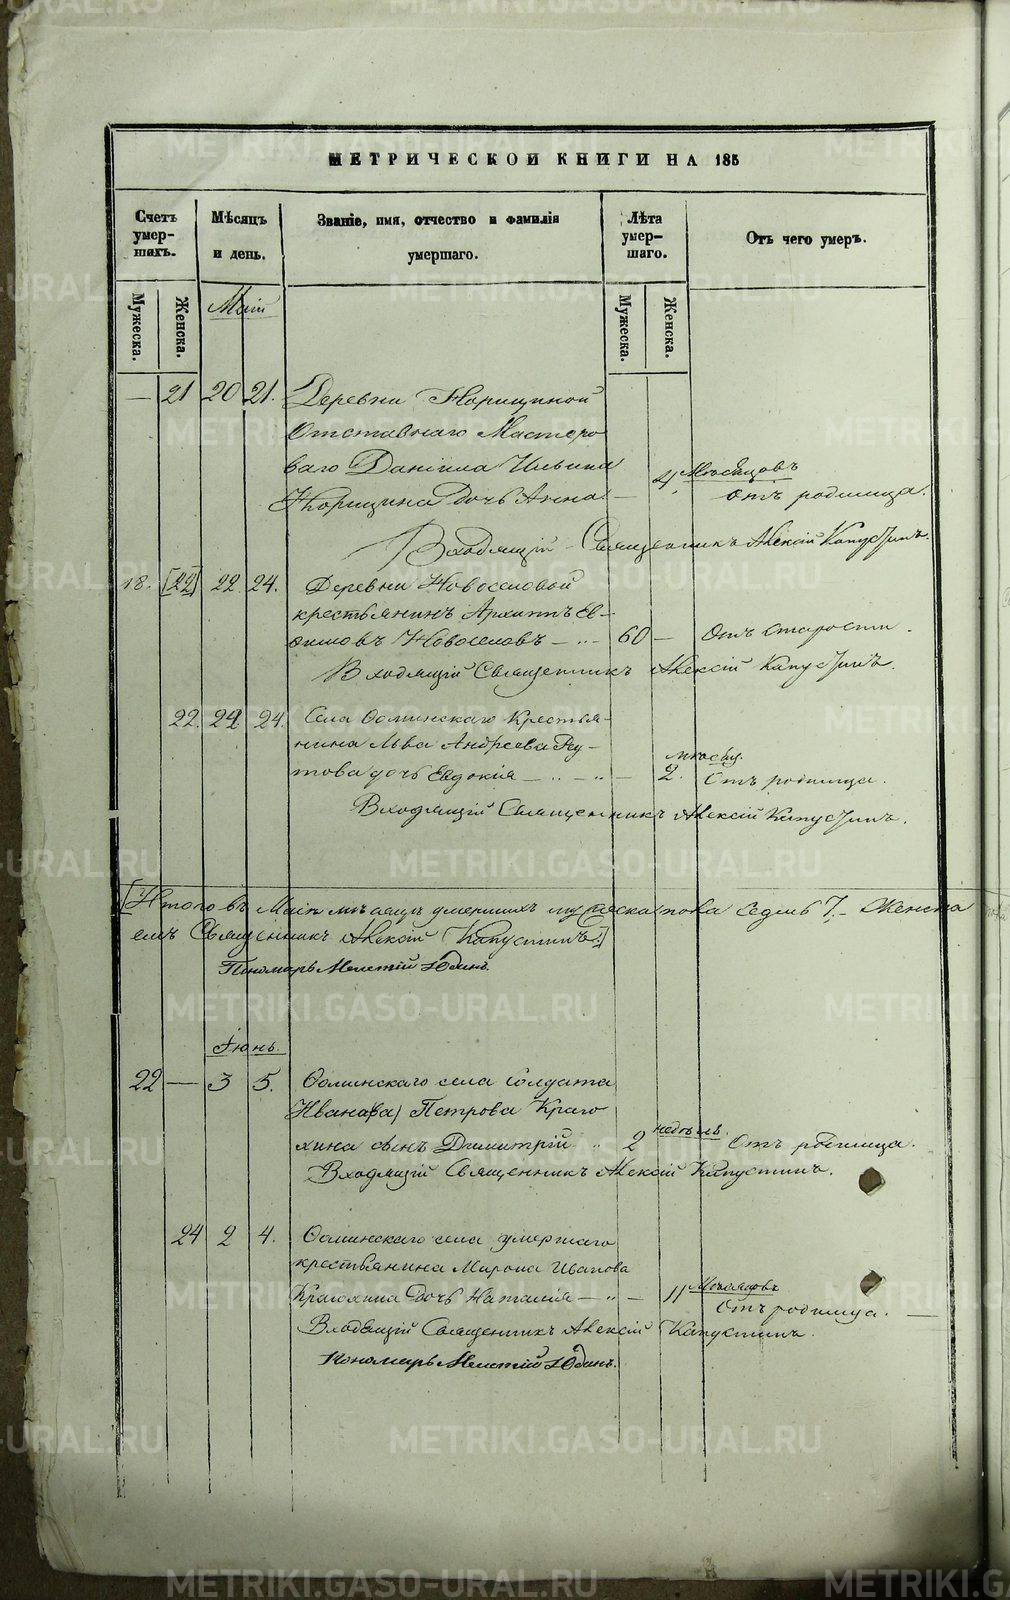 МЕТРИЧЕСКОЙ КНИГИ НА 185
Счетъ умер-шихъ.
Мѣсяцъ и день.
Званіе, имя, отчество и фамилія умершаго.
Лѣта умер-шаго.
Отъ чего умеръ.
Мужеска.
Женска.
Маій
Мужеска.
Женска.
— 21 20 21. Деревни Корицыной
Отставнаго Мастеро
ваго Даніила Ильина
Корицина дочь Анна — 4 Мѣсяцовъ Отъ родимца.
Входящій Священникъ Алексій Капустинъ.
18. [22] 22 24. Деревни Новоселовой
крестьянинъ Архипъ Ев-
фимовъ Новоселовъ — 60 — Отъ старости.
Входящій Священникъ Алексій Капустинъ.
22. 22 24. Села Осминскаго Крестья-
нина Льва Андреева Реу-
това дочь Евдокія — 2. мѣсяц. Отъ родимца.
Входящій Священникъ Алексій Капустинъ.
[Итого въ Маіи мѣсяцѣ умершихъ мужеска пола седмь 7. — Женска
Священникъ Алексій Капустинъ.]
Пономарь Мелетій Юдинъ.
Іюнь.
22 — 3 5. Осминскаго села Солдата
Ивана(ва) Петрова Краго
хина сынъ Димитрій 2 недѣль Отъ родимца.
Входящій Священникъ Алексій Капустинъ.
24 2 4. Осминскаго села умершаго
крестьянина Мирона Иванова
дочь Наталія — 11 Мѣсяцовъ Отъ родимца.
Входящій Священникъ Алексій Капустинъ.
Пономарь Мелетій Юдинъ.
METRIKI.GASO-URAL.RU